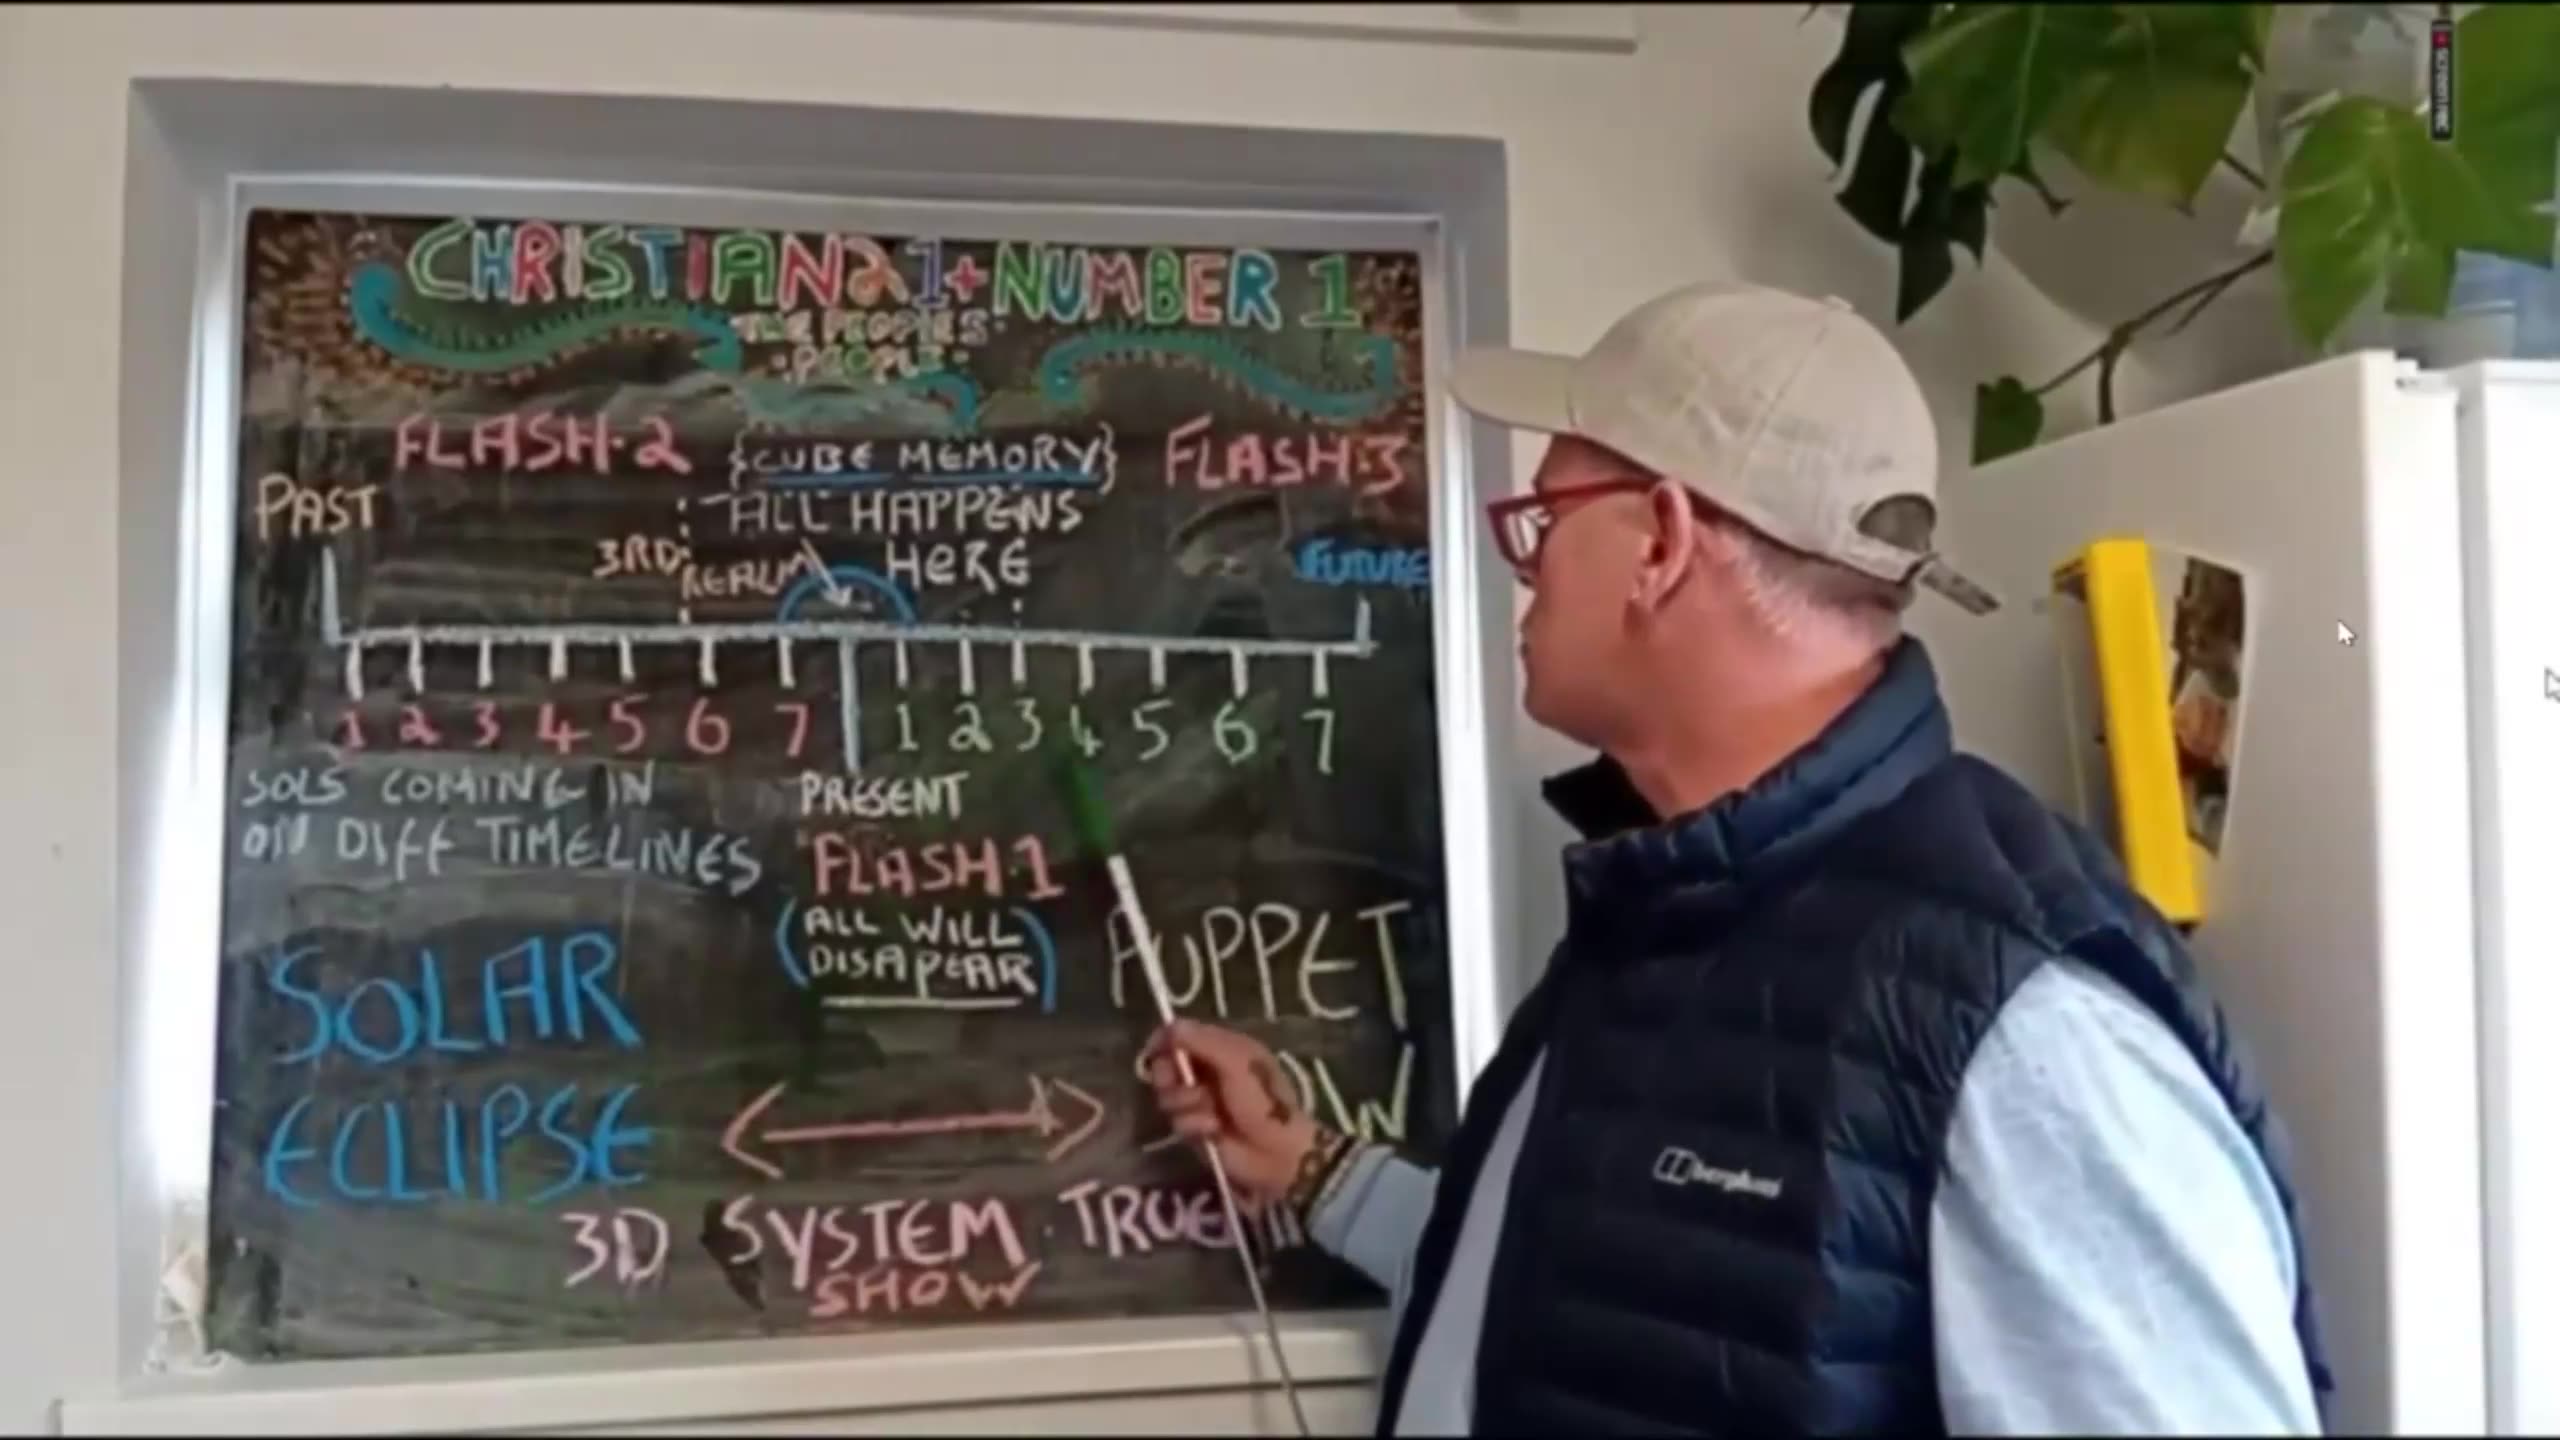 CHRISTIAN21+NUMBER 1
THE PEOPLES
PEOPLE
FLASH.2
{CUBE MEMORY}
FLASH.3
PAST
ALL HAPPENS
HERE
3RD
REALM
FUTURE
1 2 3 4 5 6 7 1 2 3 4 5 6 7
SOLS COMING IN
ON DIFF TIMELINES
PRESENT
FLASH.1
(ALL WILL
DISAPEAR)
PUPPET
SOLAR
ECLIPSE
3D SYSTEM.TRUE
SHOW
berghaus